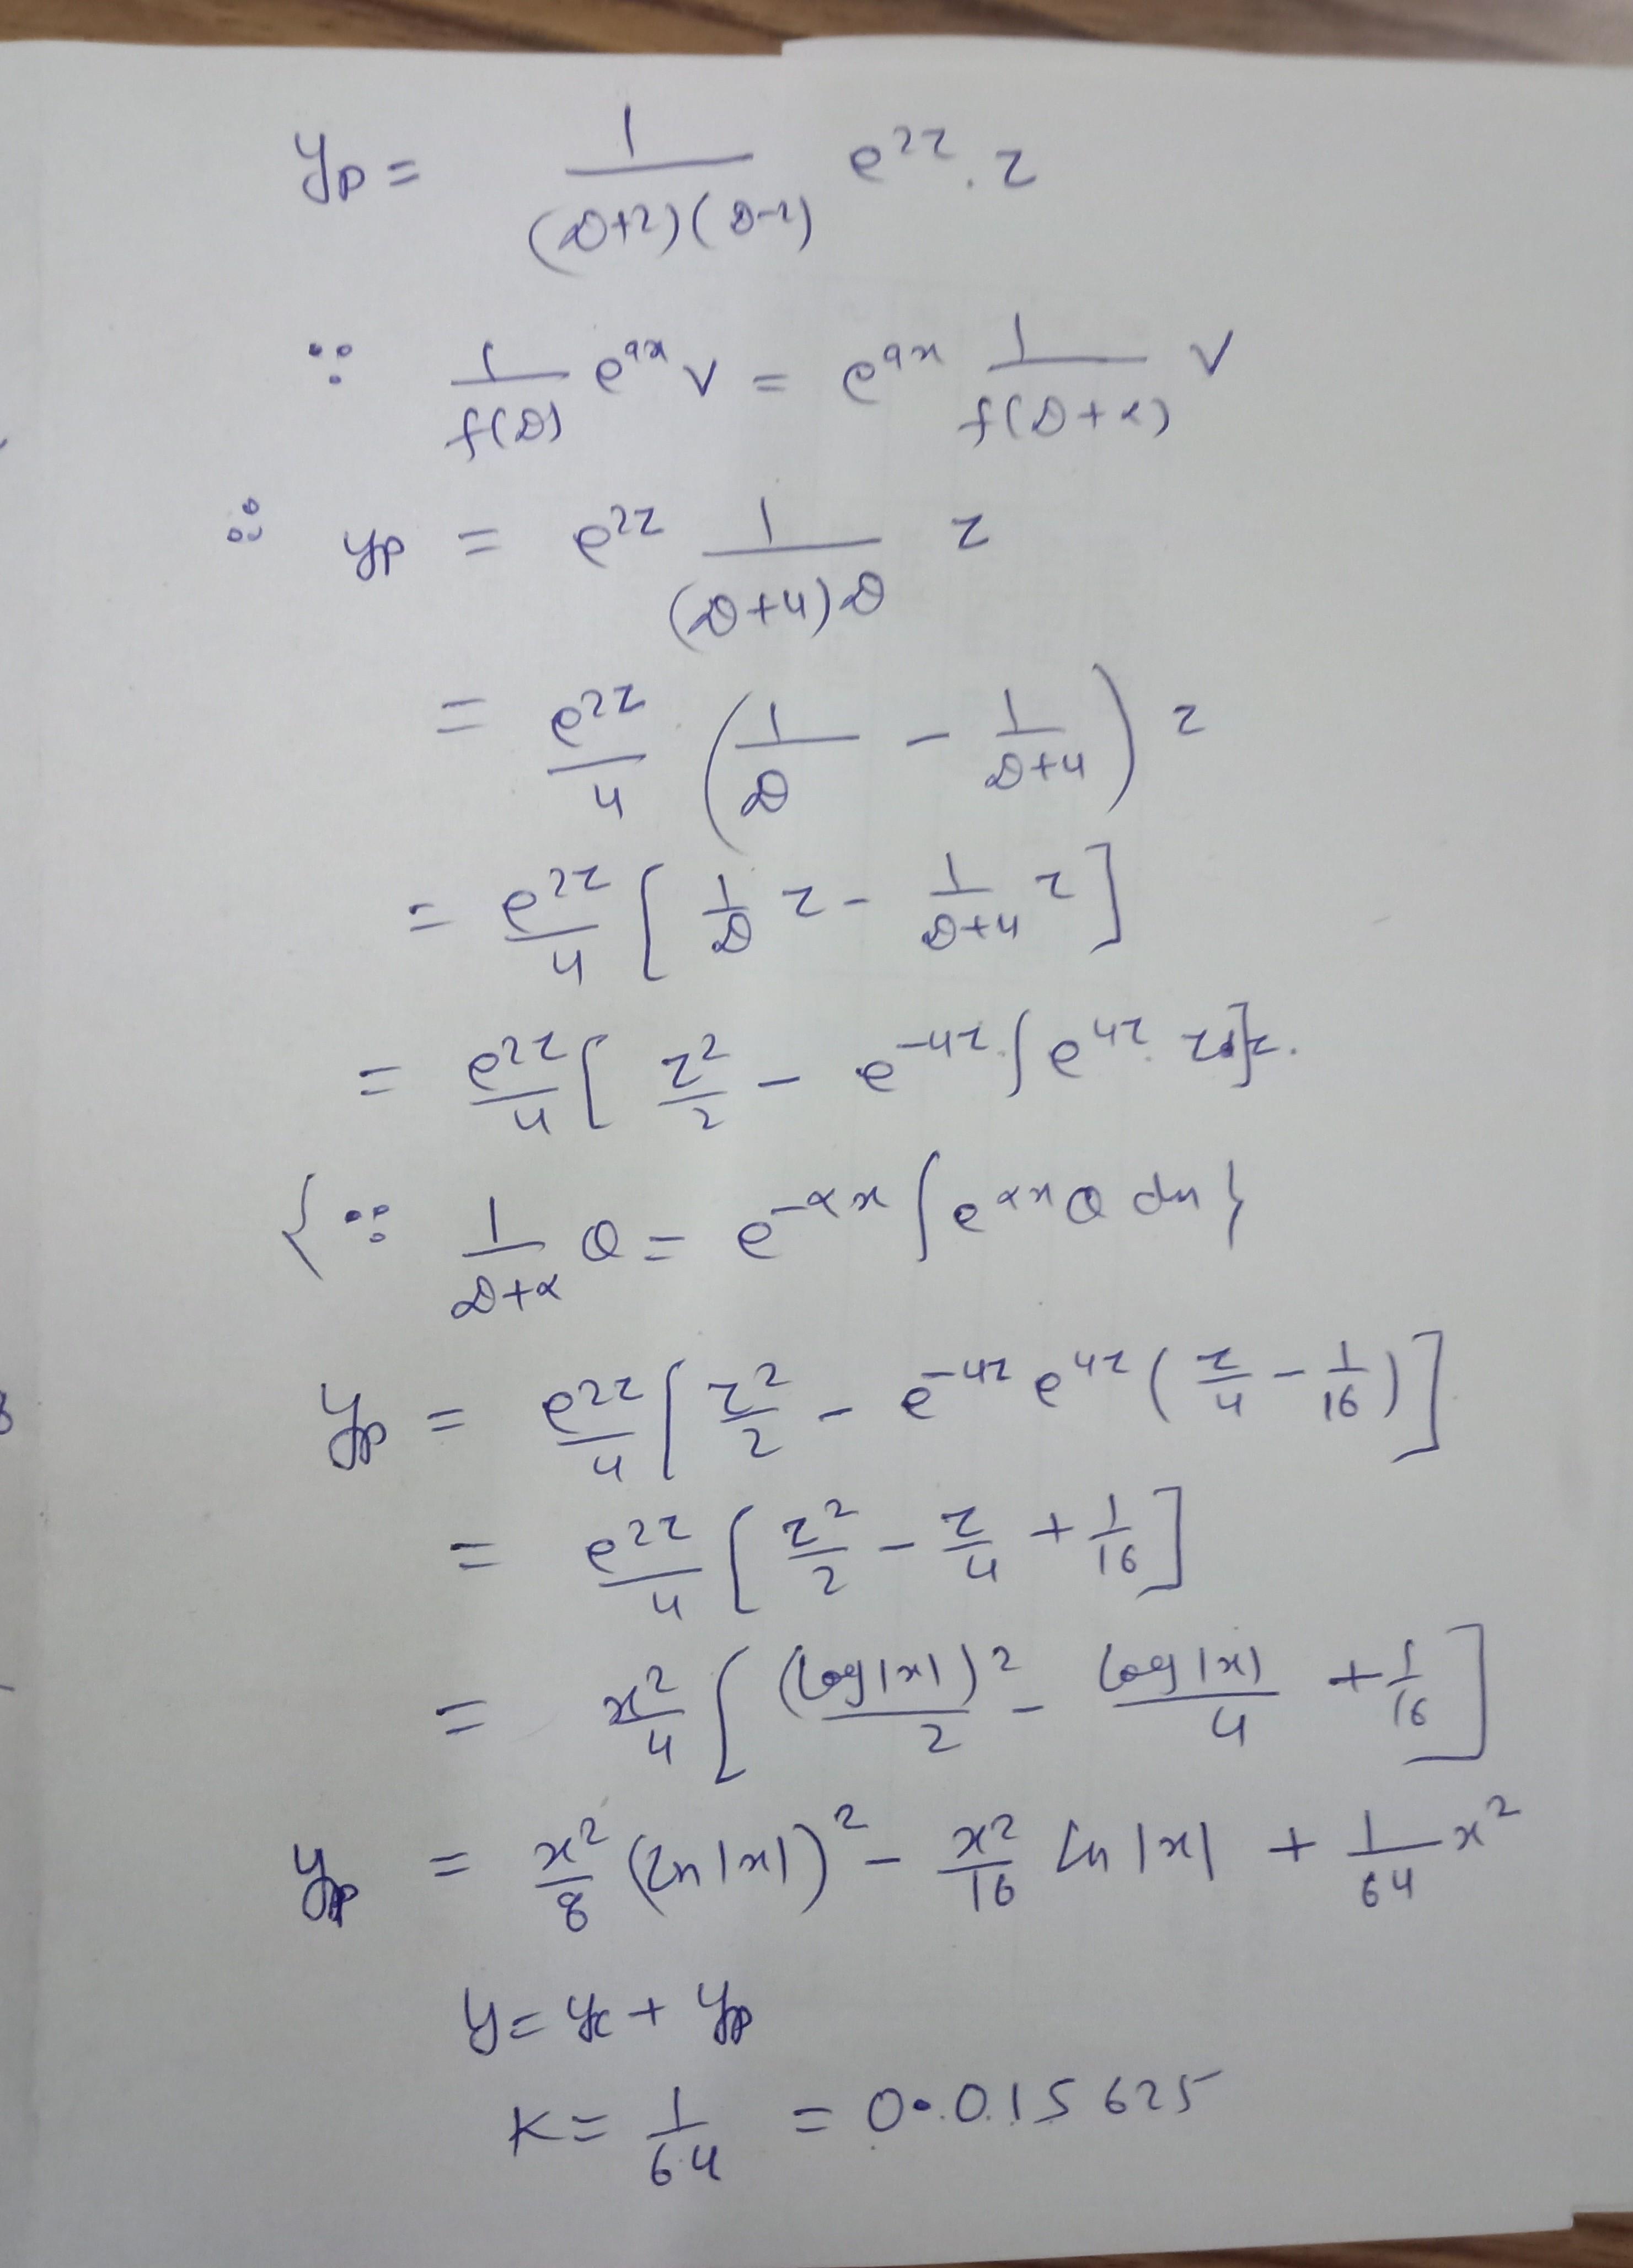 yp = 1/((D+2)(D-2)) e^{2z} . z
∵ 1/f(D) e^{ax} V = e^{ax} 1/f(D+α) V
∴ yp = e^{2z} 1/((D+4)D) z
= e^{2z}/4 (1/D - 1/(D+4)) z
= e^{2z}/4 [1/D z - 1/(D+4) z]
= e^{2z}/4 [z^2/2 - e^{-4z} ∫ e^{4z} . z dz].
{∵ 1/(D+α) Q = e^{-αx} ∫ e^{αx} Q dx}
yp = e^{2z}/4 [z^2/2 - e^{-4z} e^{4z} (z/4 - 1/16)]
= e^{2z}/4 [z^2/2 - z/4 + 1/16]
= x^2/4 [(log|x|)^2/2 - log|x|/4 + 1/16]
yp = x^2/8 (ln|x|)^2 - x^2/16 ln|x| + 1/64 x^2
y = yc + yp
K = 1/64 = 0.015625